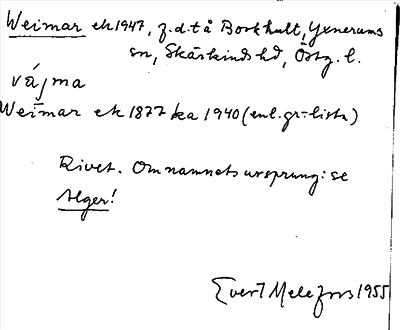 Weimar ek 1947, f.d. t å Borkhult, Yxnerums
sn, Skärkinds hd, Östg. l.
vájma
Weimar ek 1877 ka 1940 (enl. gr:lista)
Rivet. Om namnets ursprung: se
Alger!
Evert Melefors 1955